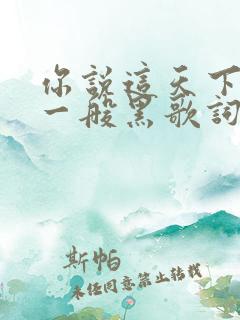 你說這天下
一般黑歌詞
斯帕
未經同意禁止轉載